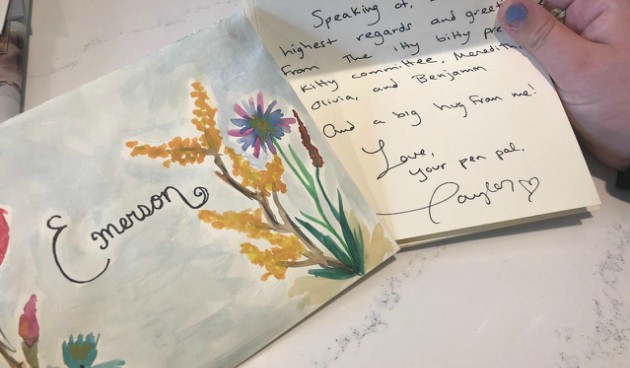 Emerson
Speaking of,
highest regards and greet
from the itty bitty pre
Kitty committee, Meredith,
Olivia, and Benjamin
And a big hug from me!
Love,
your pen pal,
Taylor ♡